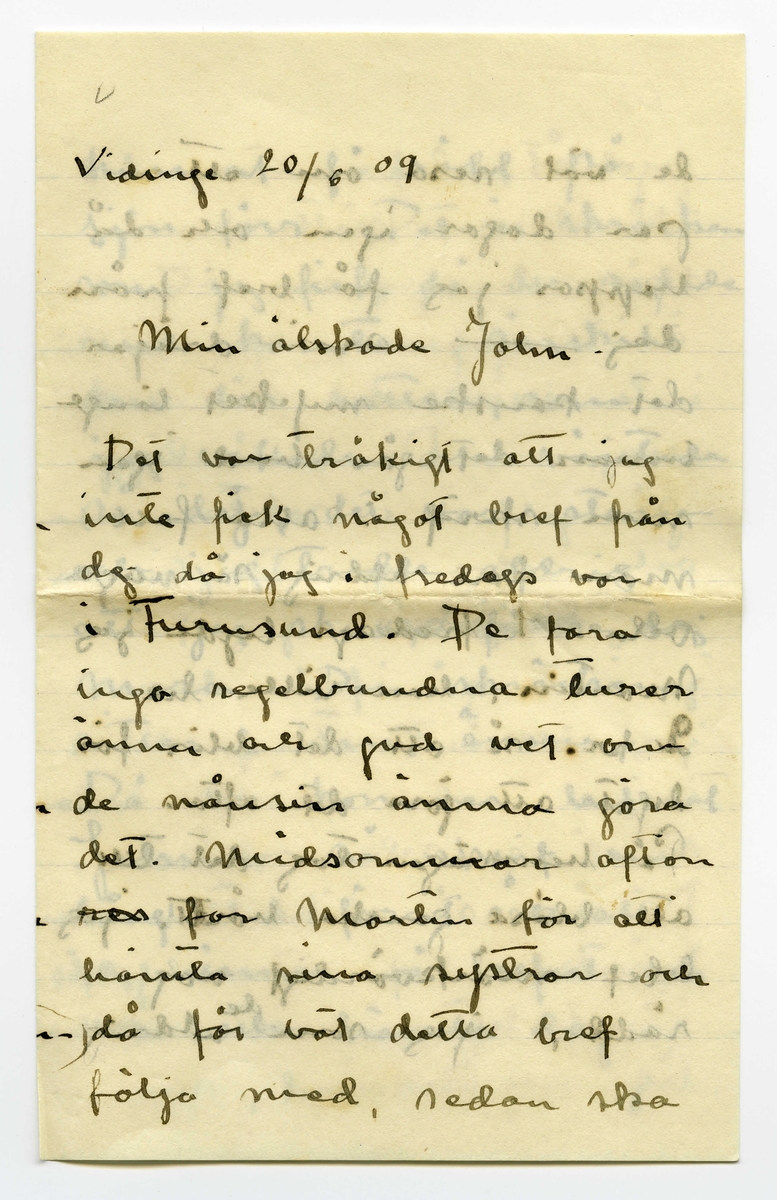 Vidinge 20/6 09
Min älskade John.
Det var tråkigt att jag
inte fick något bref från
dg då jag i fredags var
i Furusund. De fara
inga regelbundna turer
ännu och gud vet om
de nånsin ämna göra
det. Midsommar afton
far Martin för att
hämta sina systrar och
då får väl detta bref
följa med, sedan ska